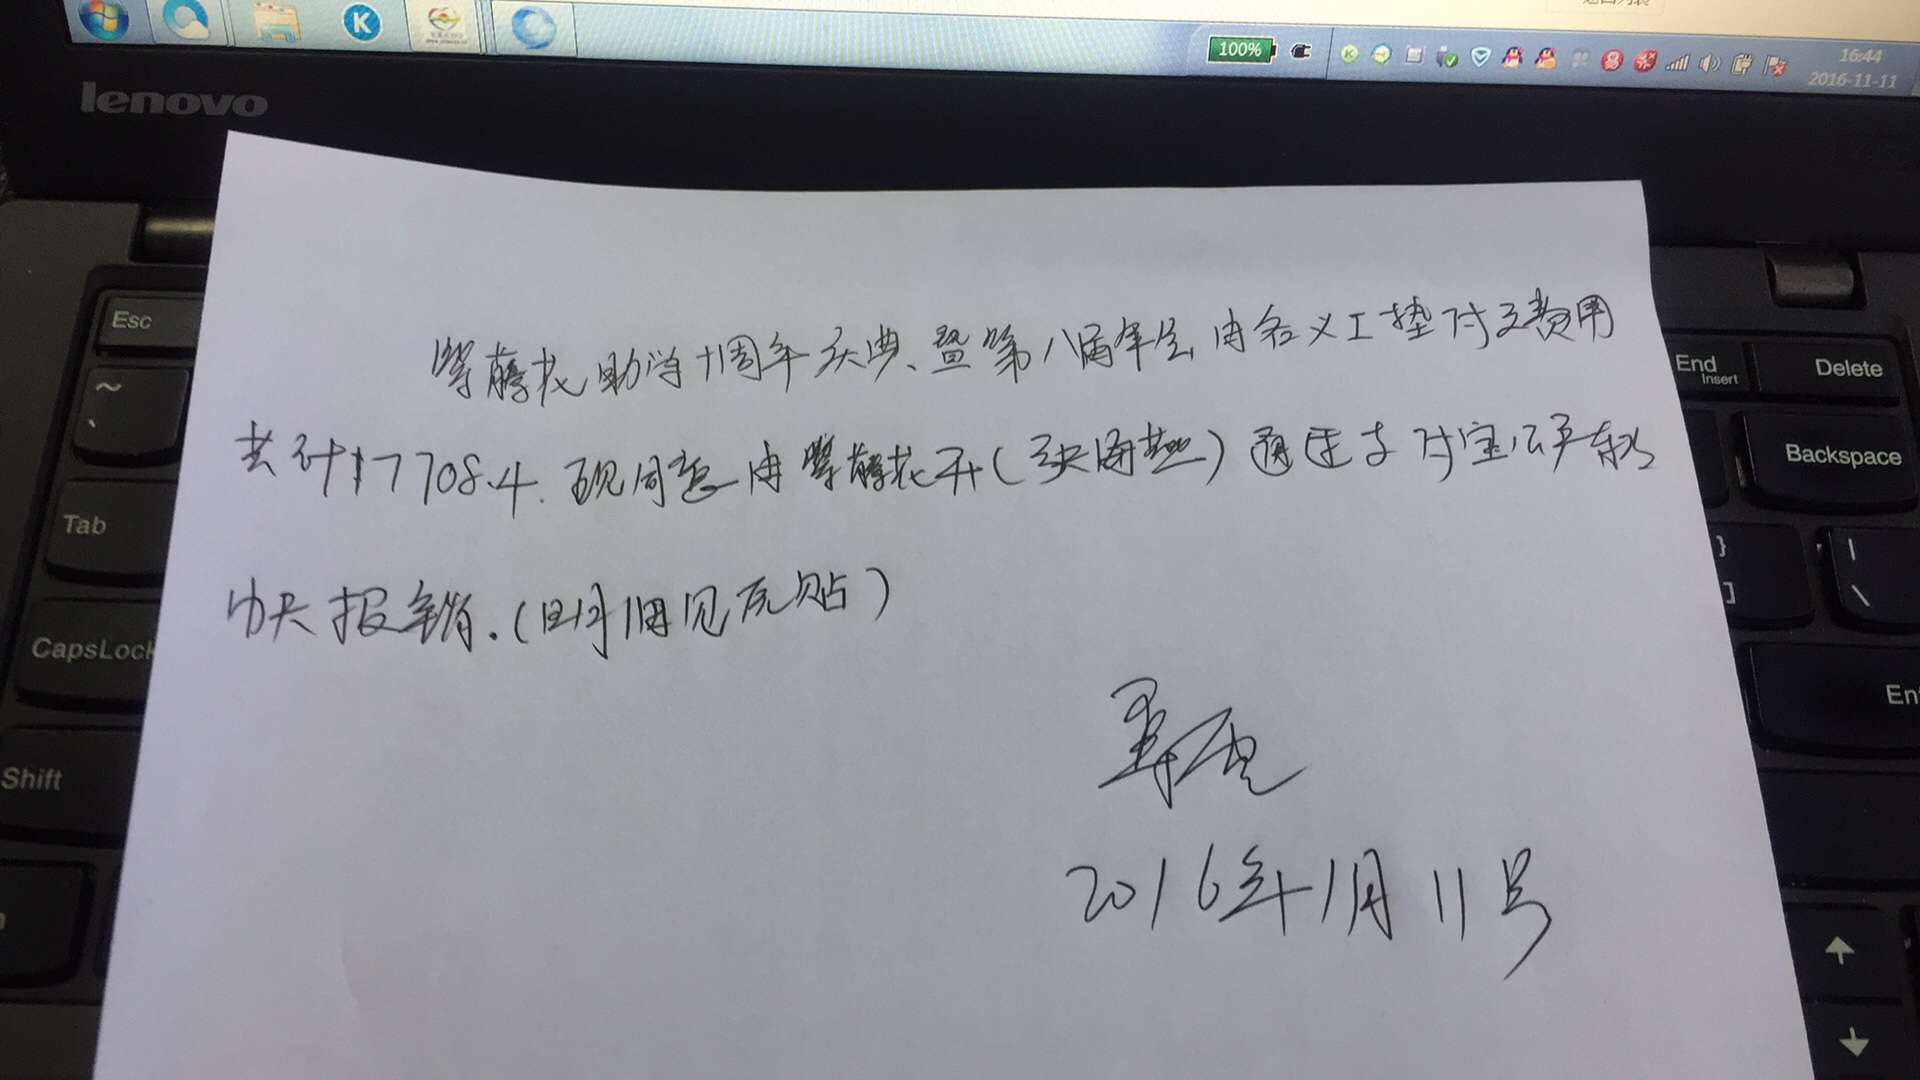 100%
16:44
2016-11-11
lenovo
Esc
~
`
Tab
CapsLock
Shift
End
Insert
Delete
Backspace
}
]
|
\
En
紫藤花助学十周年庆典、暨第八届年会,由各义工垫付之费用
共计17708.4.现同意由紫藤花开(张海燕)通过支付宝公平转
帐报销.(明细见底贴)
2016年11月11号